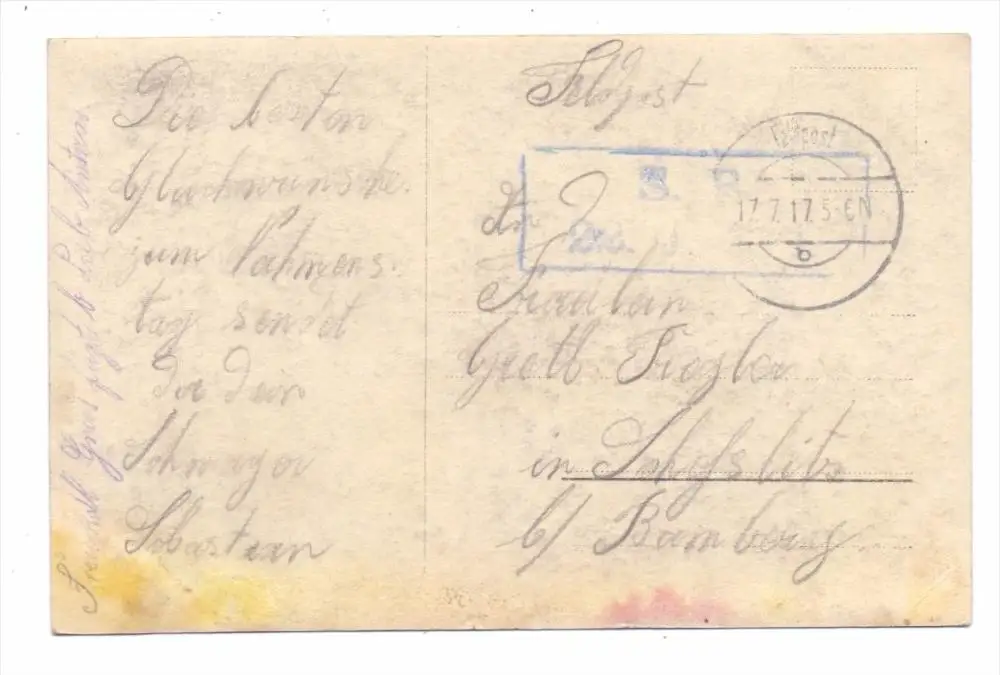 Die besten
Glückwünsche
zum Nahmens
tag sendet
Dir Dein
Schwager
Sebastian
Feldpost
An
Fräulein
Gretl Ziegler
in
b/ Bamberg
Feldpost
17.7.17.5-6N
b
S. B.
Freundl. Gruß